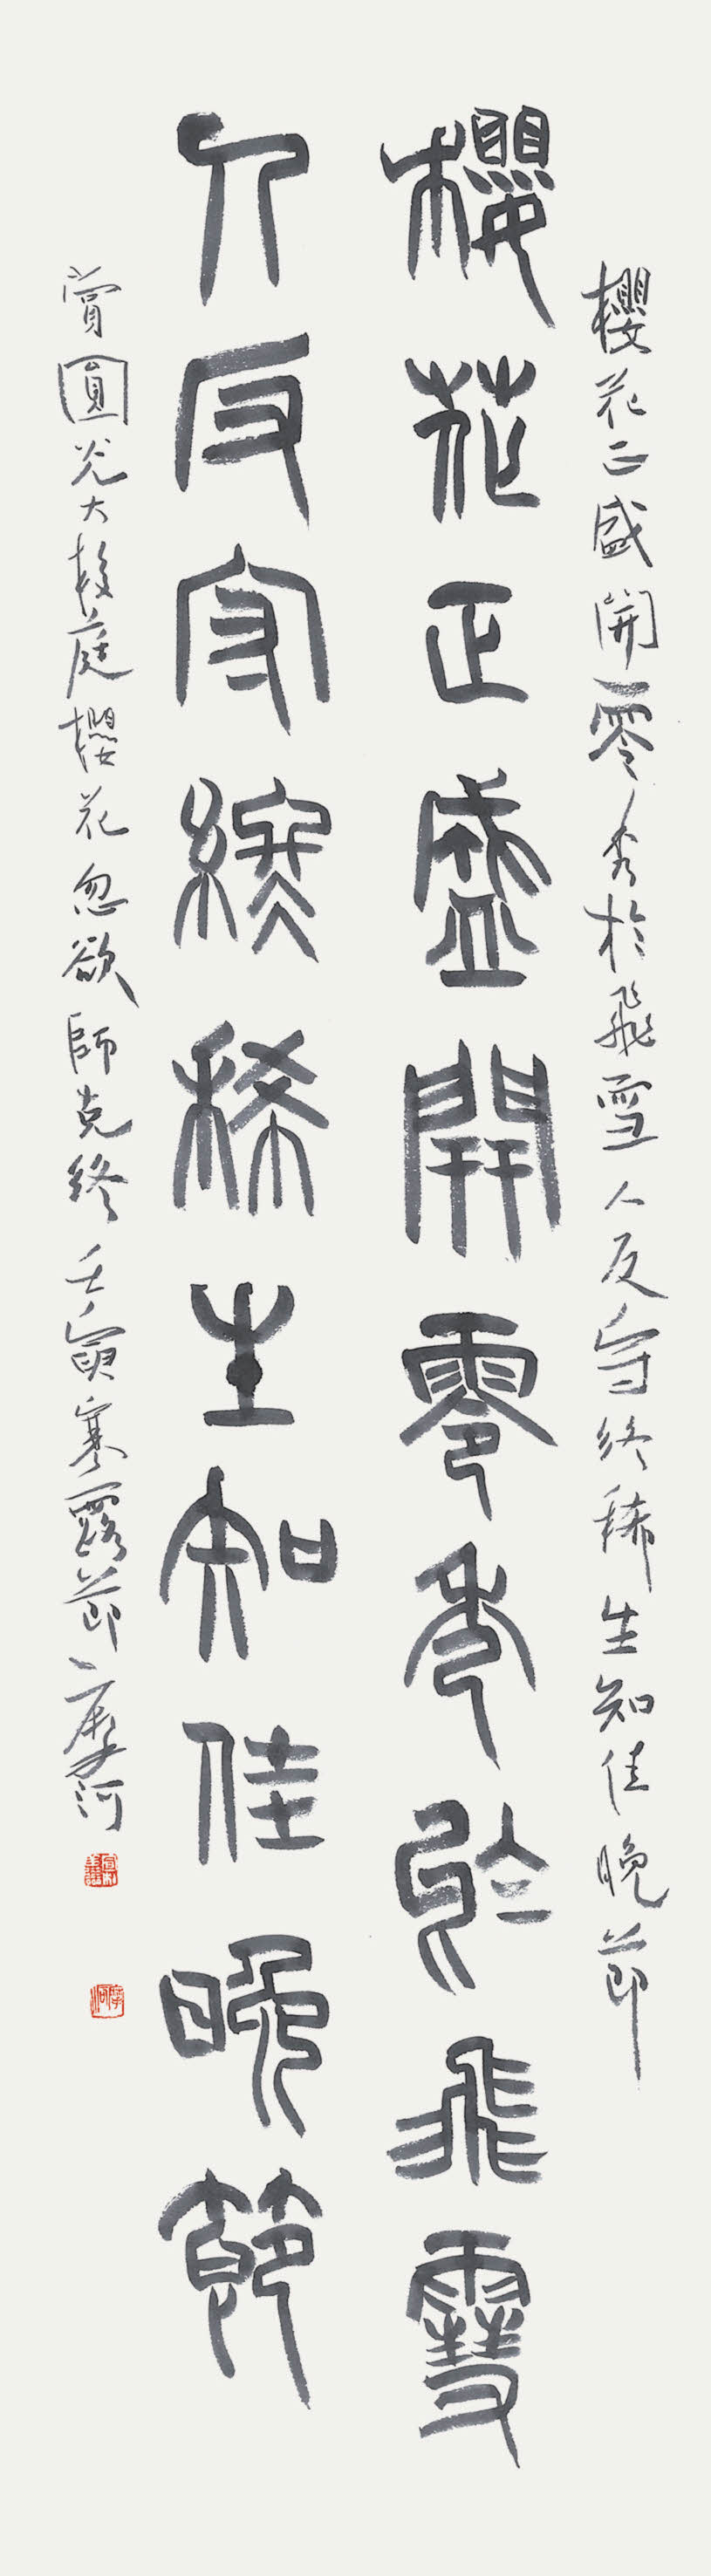 櫻花正盛開零秀於飛雪人反守終稀生知佳晚節
櫻花正盛開零秀於飛雪
人反守終稀生知佳晚節
賞圓光大校庭櫻花忽欲師克終壬寅寒露節摩河